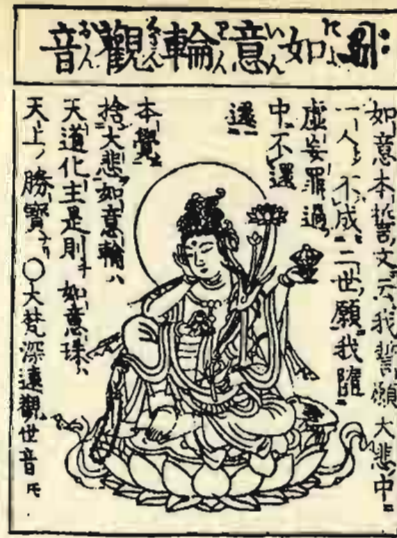 如意輪觀音
如意本誓文云我誓願大悲中
一人不成二世願我墮
虚妄罪過
中不還
還
本覺
捨大悲如意輪ハ
天道化主是則如意珠
天上勝寶 ○大梵深遠觀世音